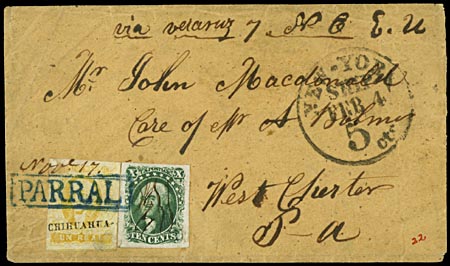 via veracruz y N O E. U
NEW-YORK
SHIP
FEB 4
5
cts
Mr John Macdonald
Care of Mr A
West Chester
P-a
Nov. 17
PARRAL
CHIHUAHUA
UN REAL
X X
TEN CENTS
22